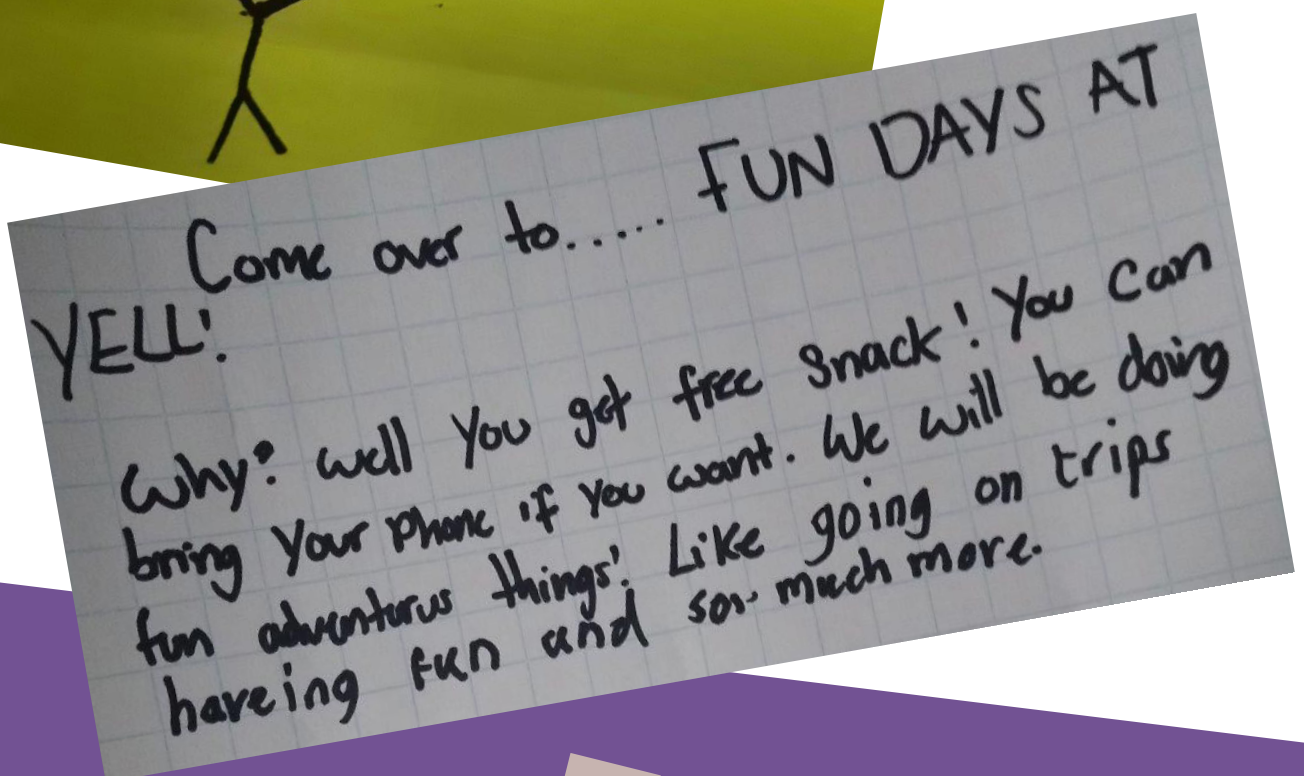 Come over to..... FUN DAYS AT
YELL!
Why? well you get free snack! You can
bring your phone if you want. We will be doing
fun adventurus things! Like going on trips
haveing fun and so much more.